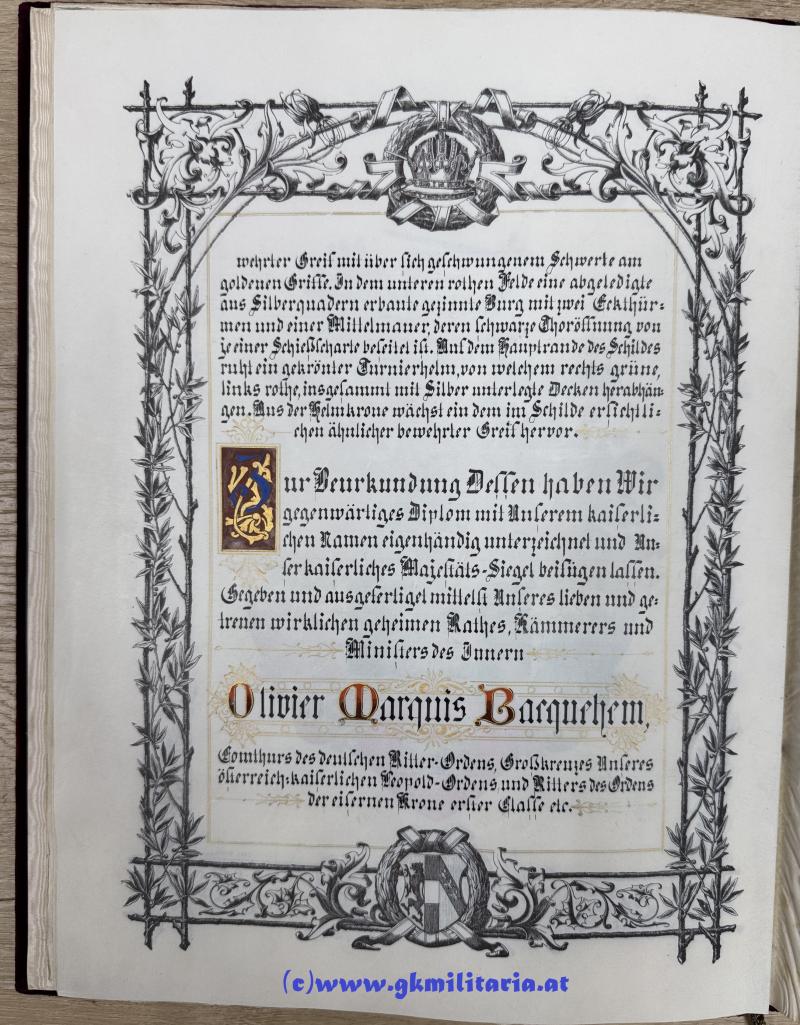 wehrter Greif mit über sich geschwungenem Schwerte am
goldenen Griffe. In dem unteren rothen Felde eine abgeledigte
aus Silberquadern erbaute gezinnte Burg mit zwei Eckthür-
men und einer Mittelmauer, deren schwarze Thoröffnung von
je einer Schießscharte beseitet ist. Auf dem Hauptrande des Schildes
ruht ein gekrönter Turnierhelm, von welchem rechts grüne,
links rothe, insgesammt mit Silber unterlegte Decken herabhän-
gen. Aus der Helmkrone wächst ein dem im Schilde ersichtli-
chen ähnlicher bewehrter Greif hervor.
Zur Beurkundung Dessen haben Wir
gegenwärtiges Diplom mit Unserem kaiserli-
chen Namen eigenhändig unterzeichnet und Un-
ser kaiserliches Majestäts-Siegel beifügen lassen.
Gegeben und ausgefertiget mittelst Unseres lieben und ge-
treuen wirklichen geheimen Rathes, Kämmerers und
Ministers des Innern
Olivier Marquis Bacquehem,
Comthurs des deutschen Ritter-Ordens, Großkreuzes Unseres
österreich-kaiserlichen Leopold-Ordens und Ritters des Ordens
der eisernen Krone erster Classe etc.
(c)www.gkmilitaria.at